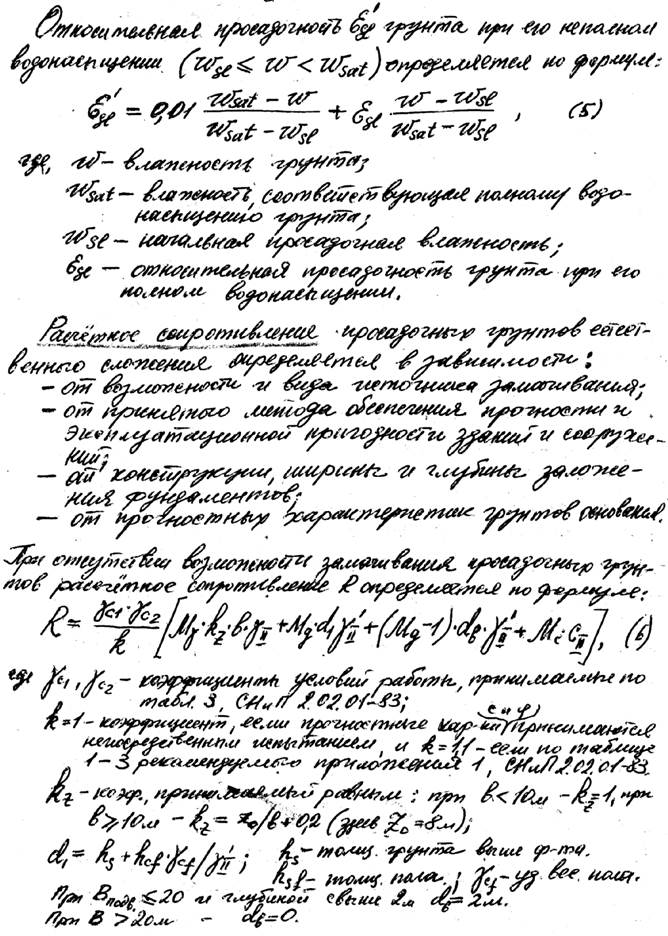 Относительная просадочность ε'sl грунта при его неполном
водонасыщении (Wsl ≤ W < Wsat) определяется по формуле:
ε'sl = 0,01 (Wsat − W)/(Wsat − Wsl) + εsl (W − Wsl)/(Wsat − Wsl), (5)
где, W – влажность грунта;
Wsat – влажность, соответствующая полному водо-
насыщению грунта;
Wsl – начальная просадочная влажность;
εsl – относительная просадочность грунта при его
полном водонасыщении.
Расчётное сопротивление просадочных грунтов естест-
венного сложения определяется в зависимости:
– от возможности и вида источника замачивания;
– от принятого метода обеспечения прочности и
эксплуатационной пригодности зданий и сооруже-
ний;
– от конструкции, ширины и глубины заложе-
ния фундаментов;
– от прочностных характеристик грунтов основания.
При отсутствии возможности замачивания просадочных грун-
тов расчётное сопротивление R определяется по формуле:
R = (γc1·γc2)/k [Mγ·kz·b·γII + Mg·d1·γ'II + (Mg−1)·dв·γ'II + Mc·cII], (6)
где γc1, γc2 – коэффициенты условий работы, принимаемые по
табл. 3, СНиП 2.02.01-83;
k=1 – коэффициент, если прочностные хар-ки (с и φ) принимаются
непосредственным испытанием, и k=1,1 – если по таблице
1–3 рекомендуемого приложения 1, СНиП 2.02.01-83.
kz – коэф., принимаемый равным: при b<10м – kz=1, при
b≥10м – kz = z0/b+0,2 (здесь Z0=8м);
d1 = hs + hcf·γcf/γ'II; hs – толщ. грунта выше ф-та.
hsf – толщ. пола.; γcf – уд. вес. пола.
При Bподв. ≤20 и глубиной свыше 2м dв=2м.
При B >20м – dв=0.